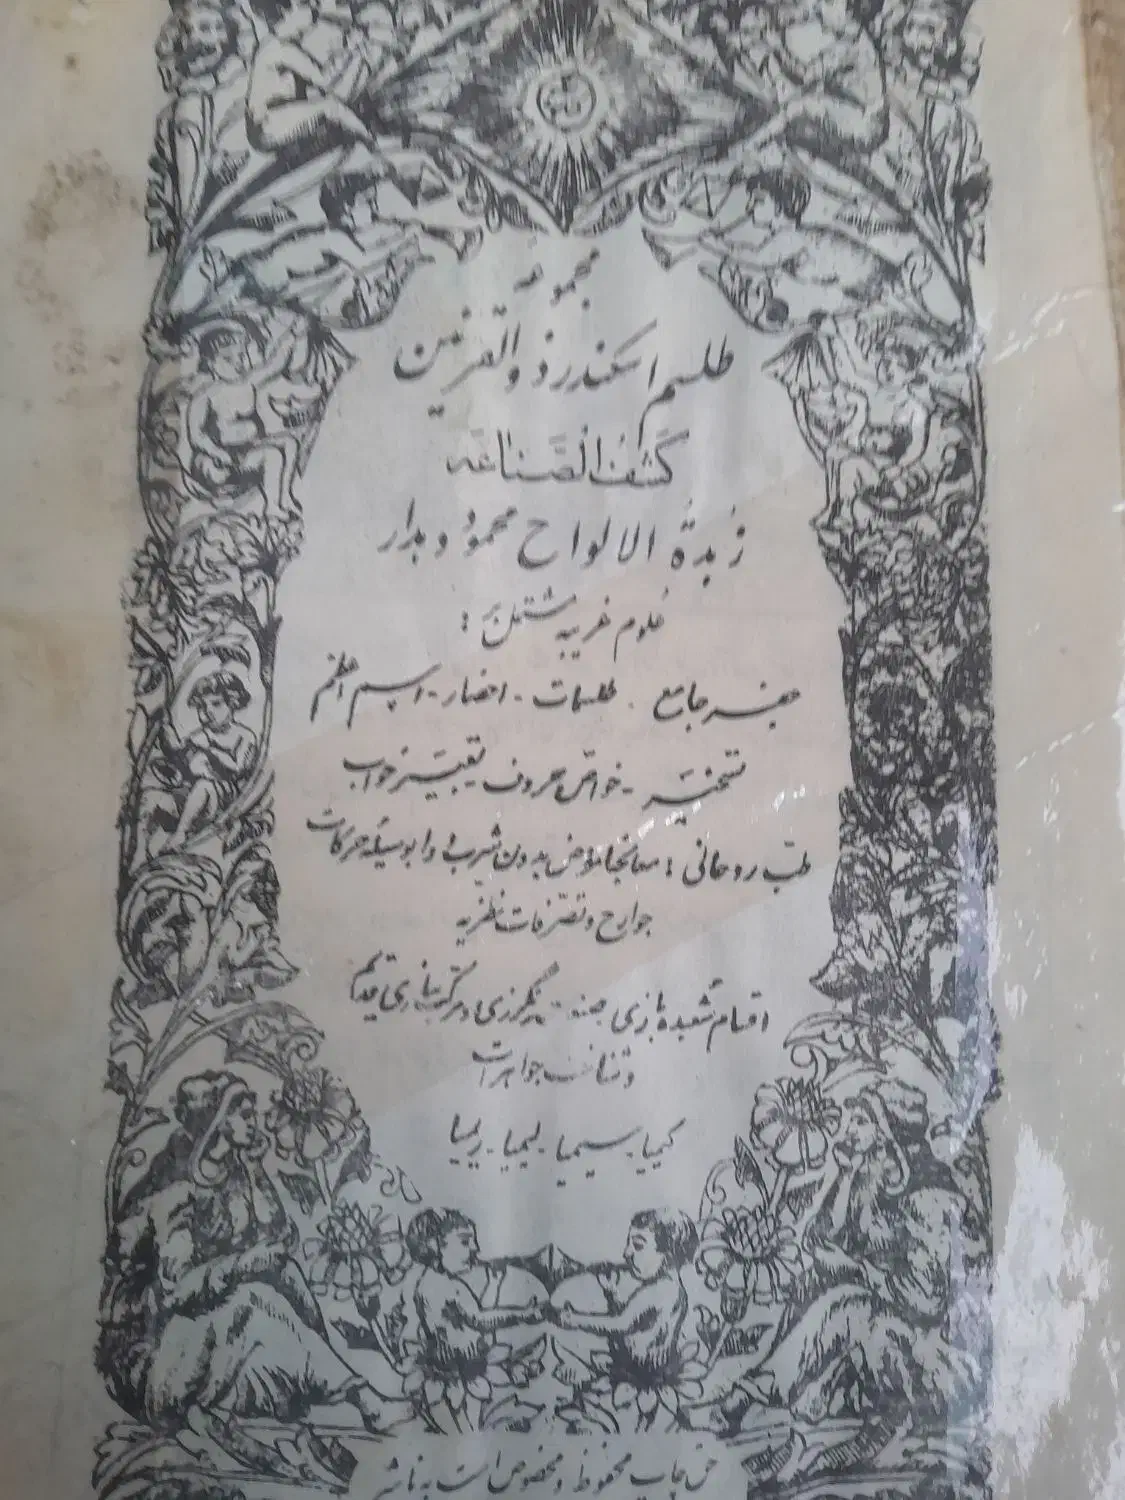 مجموعه
طلسم اسکندر ذوالقرنین
کشف الصناعه
زُبدةُ الالواح محمود دبدار
علوم غریبه مشتمل بر :
جفر جامع - طلسمات - احضار - اسم اعظم
تسخیر - خواص حروف تعبیر خواب
طب روحانی : معالجه مرض بدون شرب دوا بوسیله حرکات
جوارح و تصرفات نظریه
اقسام شعبده بازی هند - رنگرزی و مرکب سازی قدیم
و شناخت جواهرات
کیمیا - سیمیا - لیمیا - ریمیا
حق چاپ محفوظ و مخصوص است به ناشر